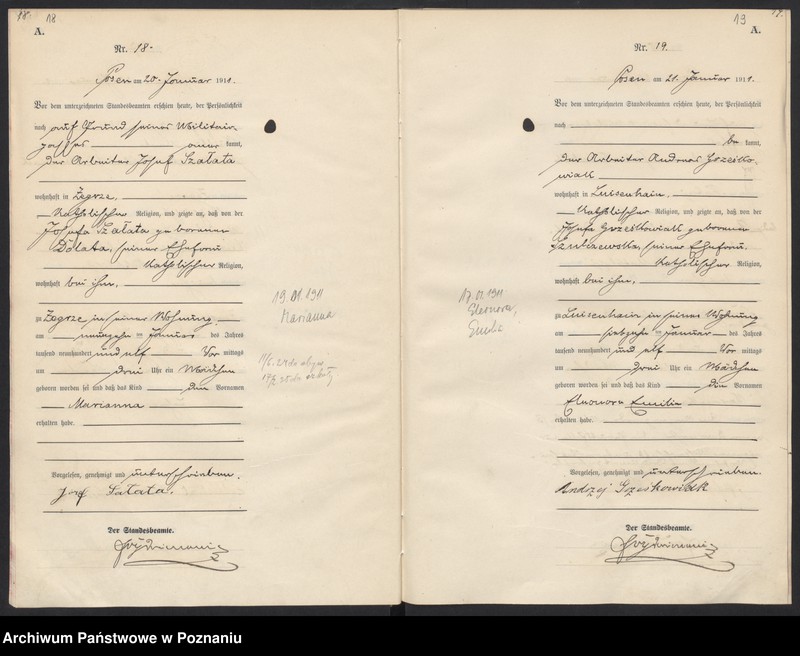 18
A.
Nr. 18.
Posen am 20. Januar 1911.
Vor dem unterzeichneten Standesbeamten erschien heute, der Persönlichkeit
nach auf Grund seines Militair-
passes aner kannt,
der Arbeiter Josef Szałata
wohnhaft in Żegrze,
Katholischer Religion, und zeigte an, daß von der
Josefa Szałata geborenen
Dolata, seiner Ehefrau
Katholischer Religion,
wohnhaft bei ihm,
zu Żegrze in seiner Wohnung,
am neunzehn ten Januar des Jahres
tausend neunhundert und elf Vor mittags
um drei Uhr ein Mädchen
geboren worden sei und daß das Kind den Vornamen
Marianna
erhalten habe.
Vorgelesen, genehmigt und unterschrieben.
Józef Sałata.
Der Standesbeamte.
19.01.1911
Marianna
19
A.
Nr. 19.
Posen am 21. Januar 1911.
Vor dem unterzeichneten Standesbeamten erschien heute, der Persönlichkeit
nach
be kannt,
der Arbeiter Andreas Grześko-
wiak
wohnhaft in Luisenhain,
Katholischer Religion, und zeigte an, daß von der
Josefa Grześkowiak geborenen
seiner Ehefrau
Katholischer Religion,
wohnhaft bei ihm,
zu Luisenhain in seiner Wohnung
am siebzehn ten Januar des Jahres
tausend neunhundert und elf Vor mittags
um drei Uhr ein Mädchen
geboren worden sei und daß das Kind die Vornamen
Eleonora Emilie
erhalten habe.
Vorgelesen, genehmigt und unterschrieben.
Andrzej Grześkowiak
Der Standesbeamte.
17.01.1911
Eleonora,
Emilie
Archiwum Państwowe w Poznaniu